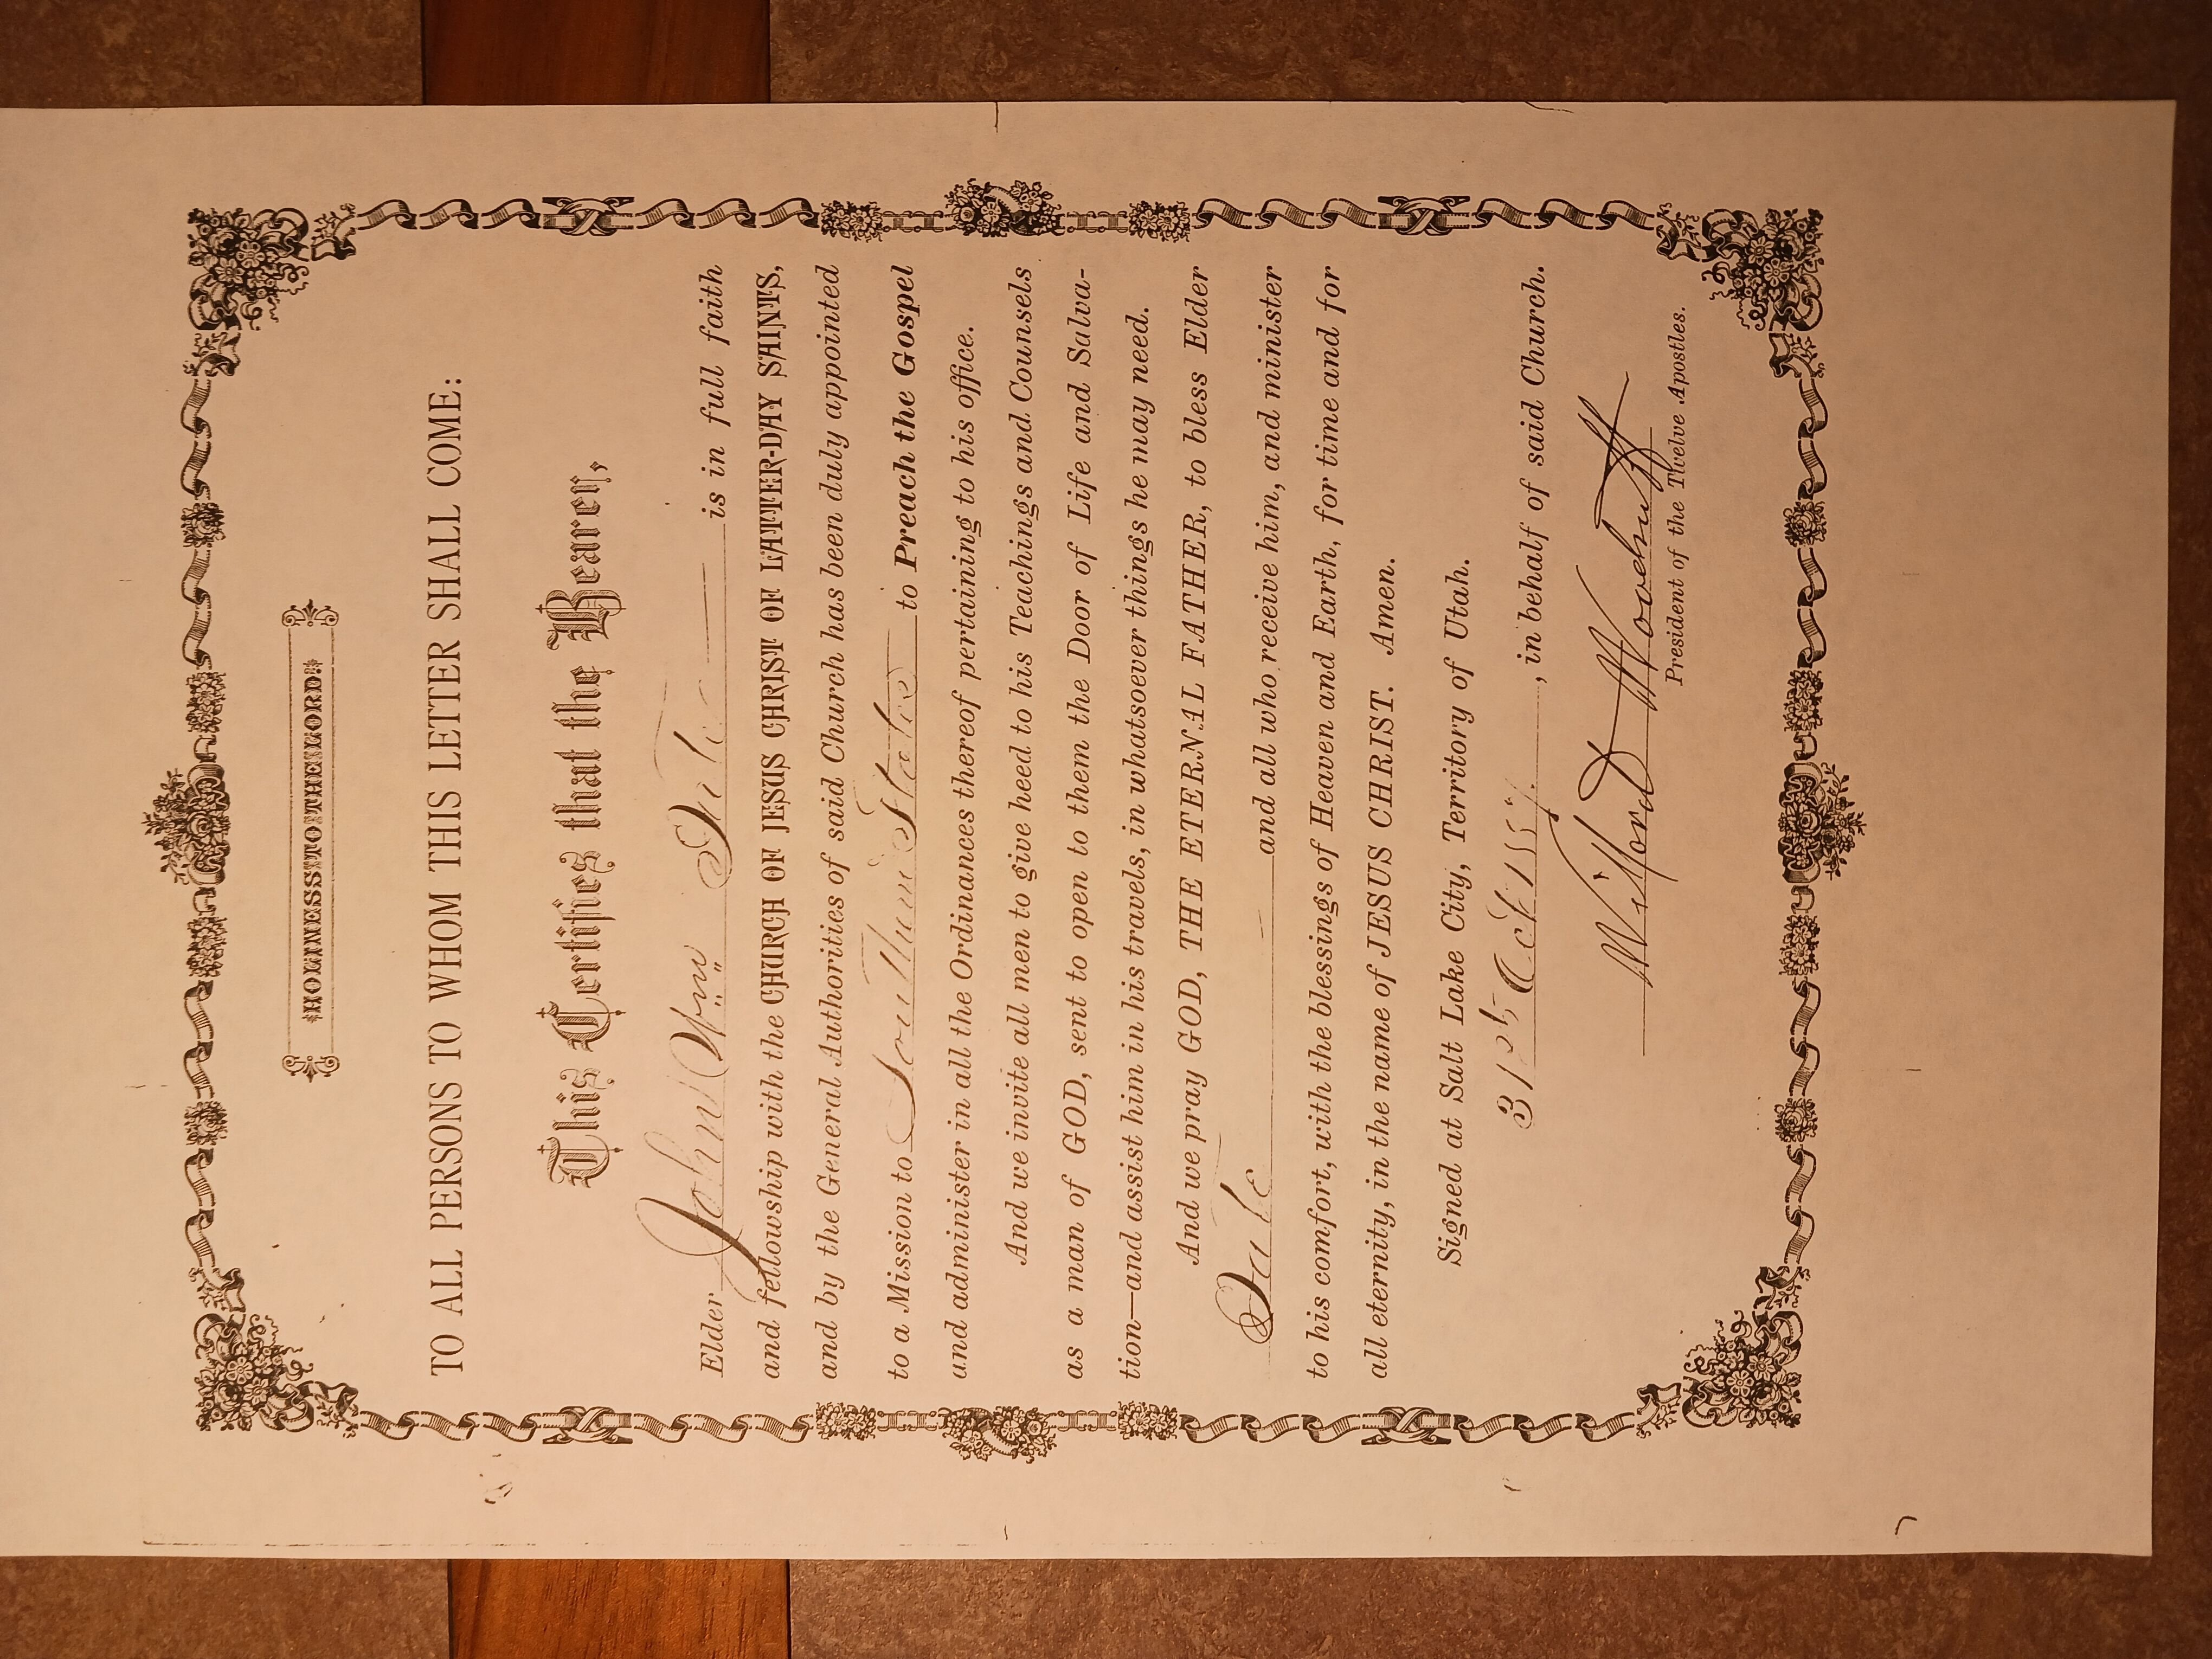 HOLINESS TO THE LORD
TO ALL PERSONS TO WHOM THIS LETTER SHALL COME:
This Certifies that the Bearer,
Elder John Wm is in full faith
and fellowship with the CHURCH OF JESUS CHRIST OF LATTER-DAY SAINTS,
and by the General Authorities of said Church has been duly appointed
to a Mission to Southern States to Preach the Gospel
and administer in all the Ordinances thereof pertaining to his office.
And we invite all men to give heed to his Teachings and Counsels
as a man of GOD, sent to open to them the Door of Life and Salva-
tion—and assist him in his travels, in whatsoever things he may need.
And we pray GOD, THE ETERNAL FATHER, to bless Elder
and all who receive him, and minister
to his comfort, with the blessings of Heaven and Earth, for time and for
all eternity, in the name of JESUS CHRIST. Amen.
Signed at Salt Lake City, Territory of Utah.
31st Oct 1887, in behalf of said Church.
Wilford Woodruff
President of the Twelve Apostles.